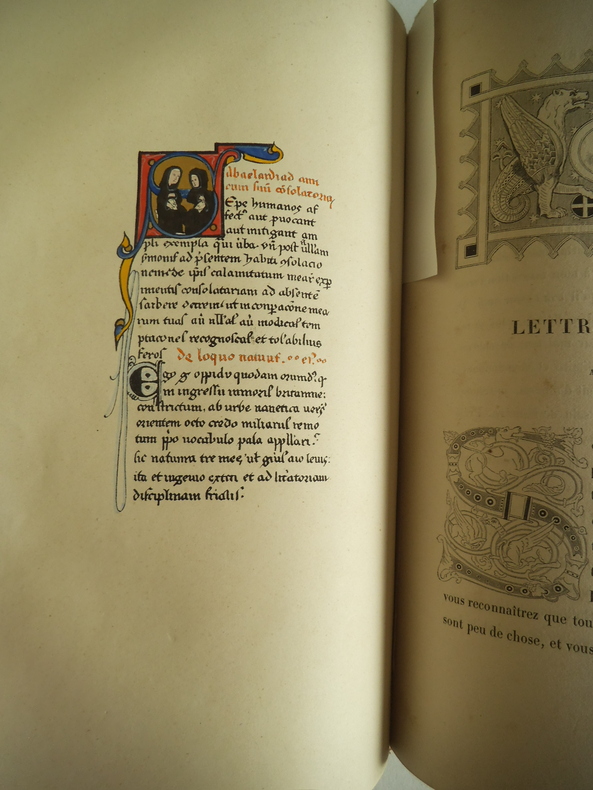 Abaelardi ad ami
cum suū cōsolatoria
Epe humanos af
fect' aut puocant
aut mitigant am
pli exempla qui ūba. Vn̄ post ūllam
smonis ad p̄sentem habiti ɔsolacio
nem de ip̄is calamitatum mear̄ exp̄
imentis consolatoriam ad absentē
scribere decrevi ut in conparacōne mea
rum tuas au n̄ll'as au modicas tem
ptaciones recognoscas et tol'abilius
feras De loquo nativit.
Ego g oppido quodam
in ingressu minoris britannie
constrictum, ab urbe nanetica vers'
orientem octo credo miliariis remo
tum p̄po vocabulo palacium appllari.
sic natura tre mee, ut gn̄is aio levis:
ita et ingenio extiti et ad litatoriam
disciplinam
LETTR
S
vous reconnaîtrez que tou
sont peu de chose, et vous